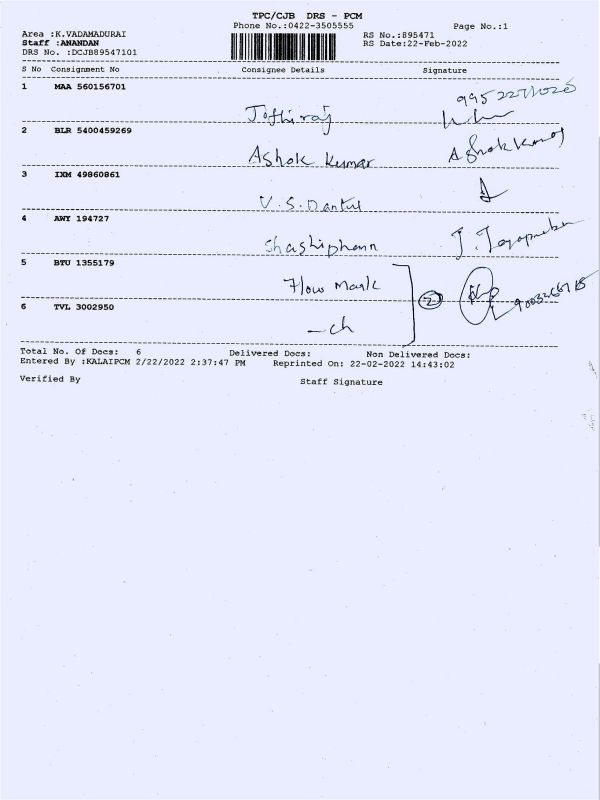 TPC/CJB DRS - PCM
Phone No.:0422-3505555 Page No.:1
Area :K.VADAMADURAI RS No.:895471
Staff :ANANDAN RS Date:22-Feb-2022
DRS No. :DCJB89547101
S No Consignment No Consignee Details Signature
1 MAA 560156701
Jothiraj
2 BLR 5400459269
Ashok Kumar Ashok Kumar
3 IXM 49860861
V.S.
4 AWY 194727
5 BTU 1355179
Flow Mark 2
6 TVL 3002950
-ch
Total No. Of Docs: 6 Delivered Docs: Non Delivered Docs:
Entered By :KALAIPCM 2/22/2022 2:37:47 PM Reprinted On: 22-02-2022 14:43:02
Verified By Staff Signature